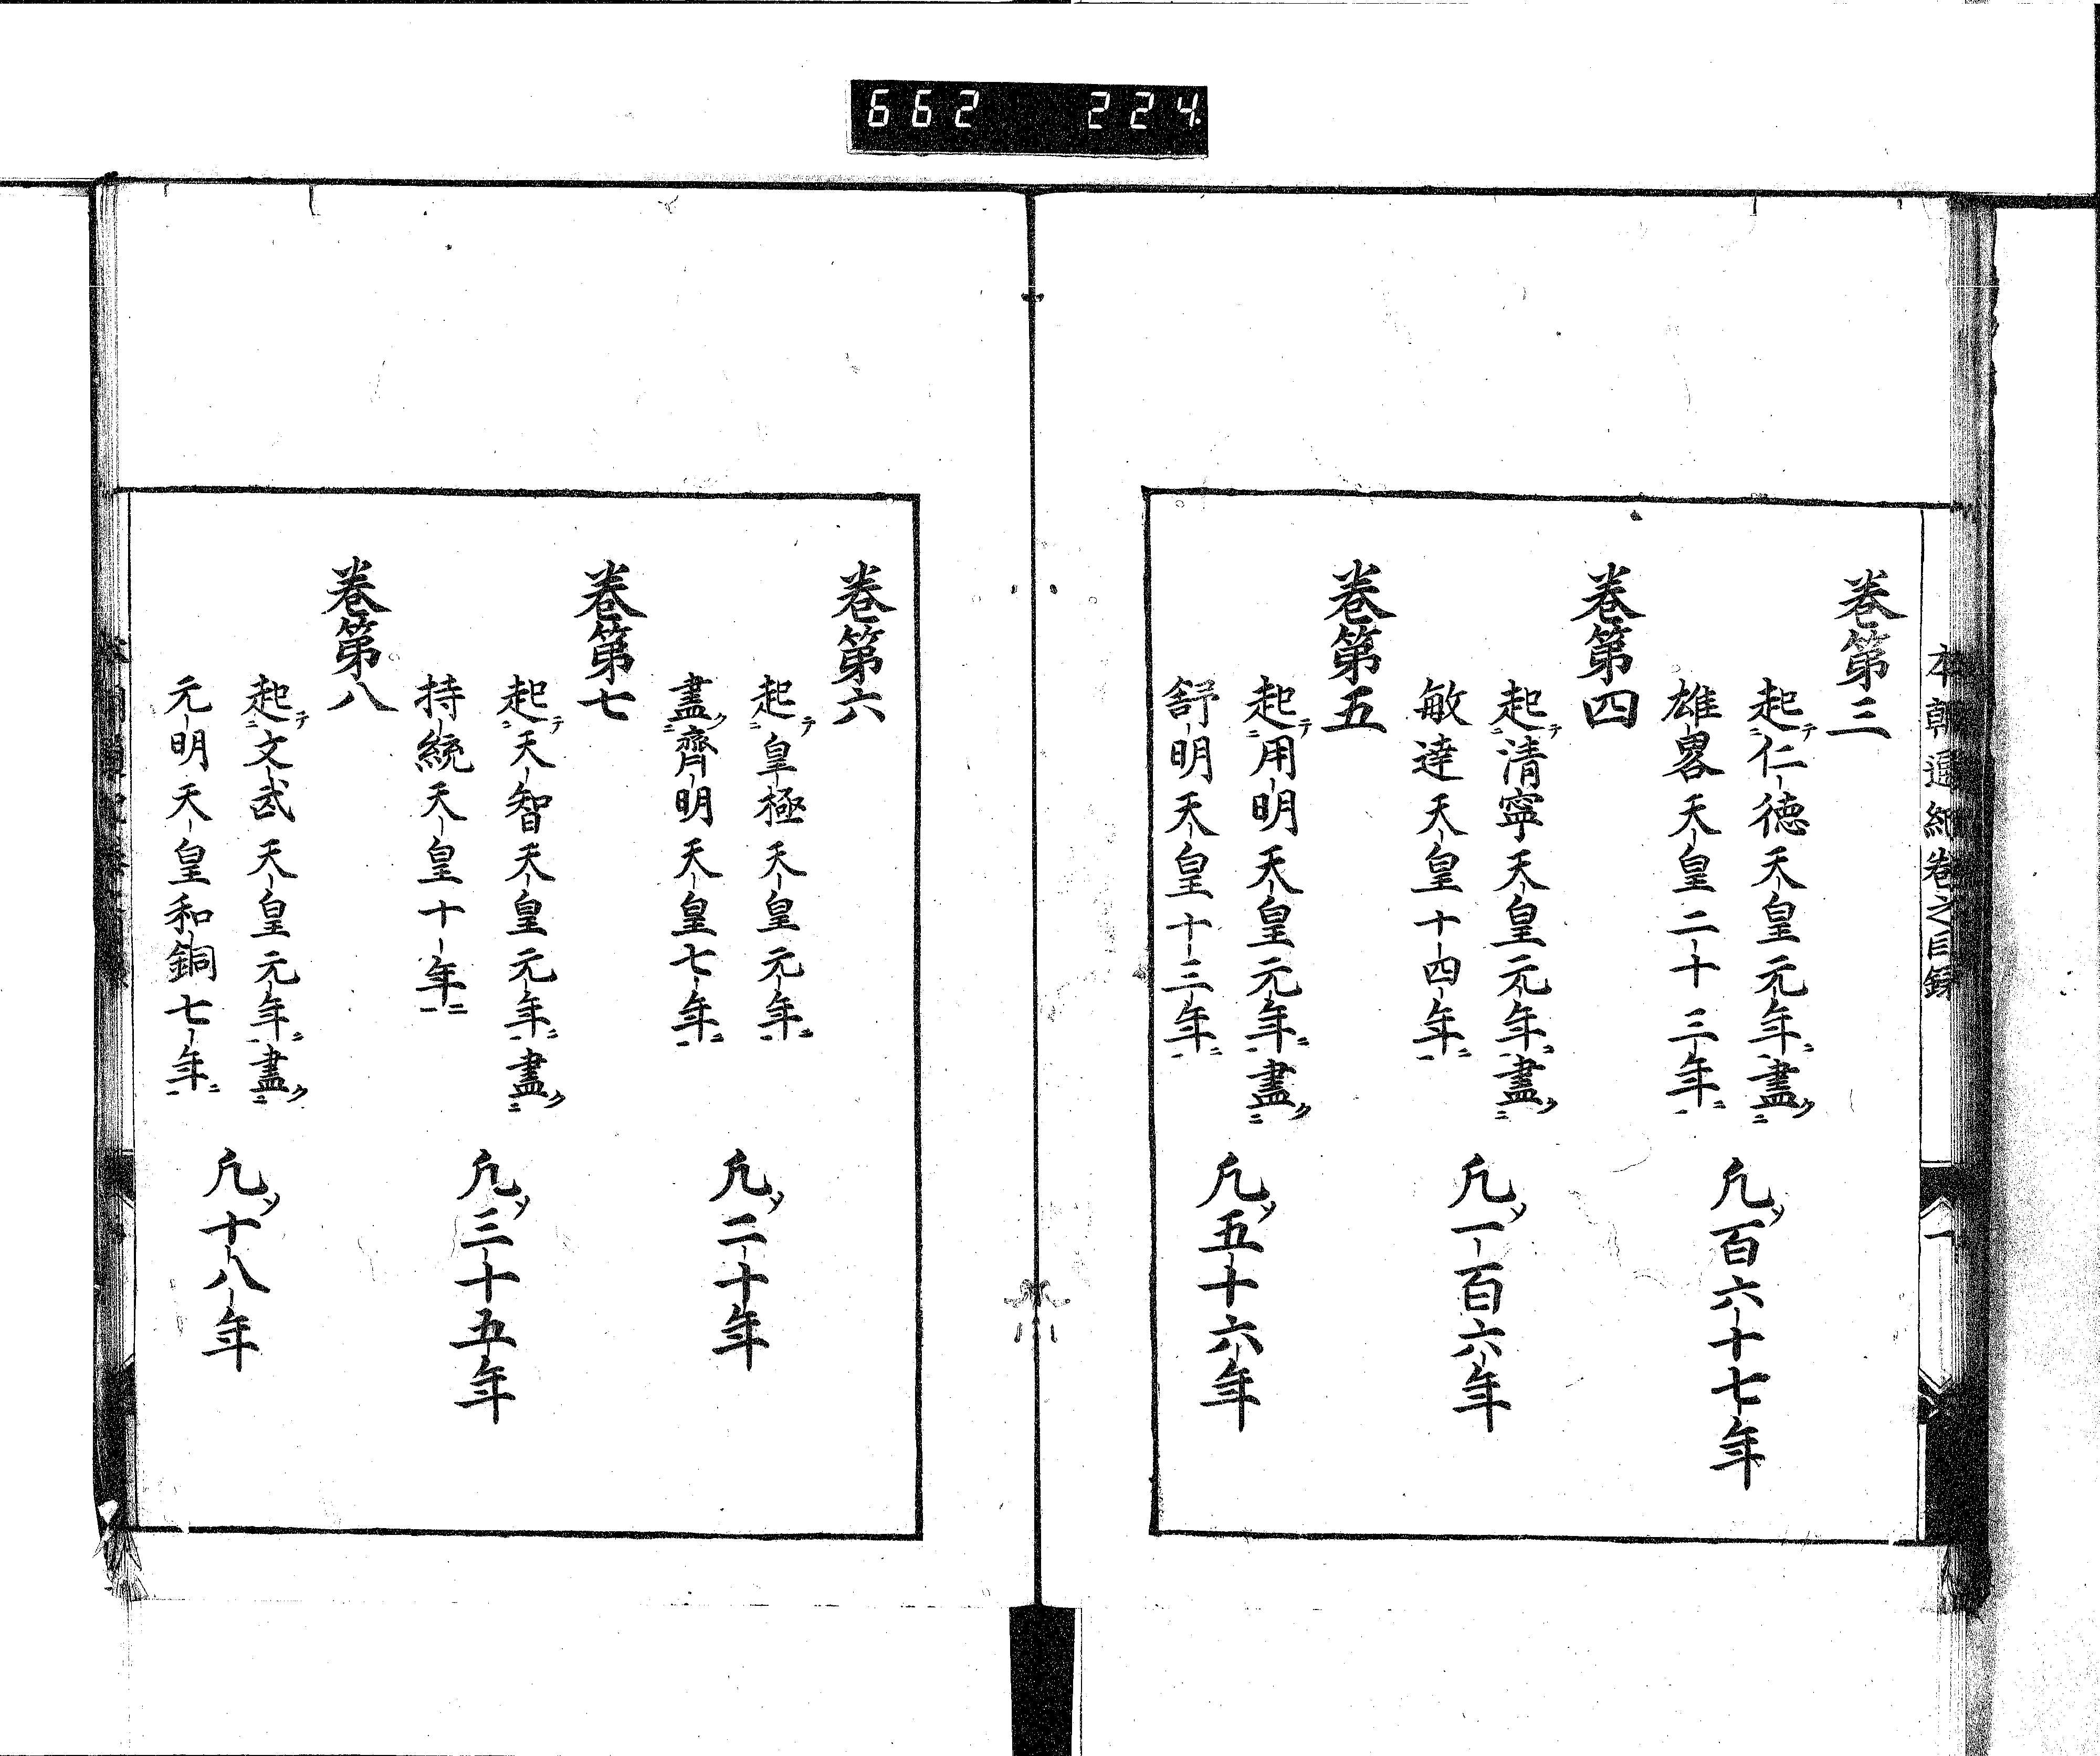 662 224
本朝通紀卷之目録
一
卷第三
起テ仁德天皇元年ニ盡ク
雄畧天皇二十三年ニ
凢ソ百六十七年
卷第四
起テ清寧天皇元年ニ盡ク
敏達天皇十四年ニ
凢ソ一百六年
卷第五
起テ用明天皇元年ニ盡ク
舒明天皇十三年ニ
凢ソ五十六年
卷第六
起テ皇極天皇元年ニ
盡ク齊明天皇七年ニ
凢ソ二十年
卷第七
起テ天智天皇元年ニ盡ク
持統天皇十年ニ
凢ソ三十五年
卷第八
起テ文武天皇元年ニ盡ク
元明天皇和銅七年ニ
凢ソ十八年